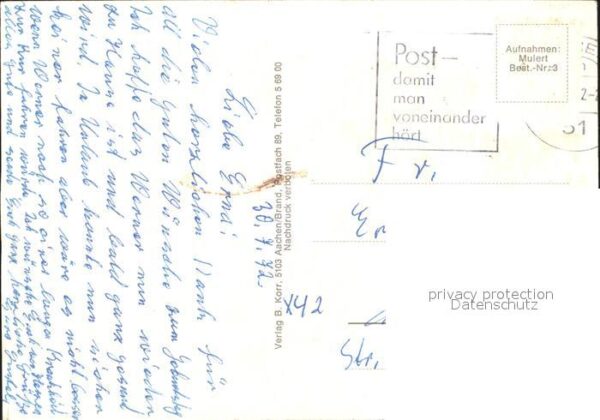 30. 7. 72.
Liebe Erna!
Vielen herzlichen Dank für
all die guten Wünsche zum Geburtstag
Ich hoffe das Werner nun wieder
zu Hause ist und bald ganz gesund
wird. In Urlaub konnte man sicher
keiner fahren aber wäre es nicht besser
wenn Werner nach so einer langen Krankheit
zur Kur fahren würde.
allen und
Post–
damit
man
voneinander
hört
Aufnahmen:
Mulert
Best.-Nr. 3
51
Fr.
Er
X42
Str.
Verlag B. Korr, 5103 Aachen/Brand, Postfach 89, Telefon 5 69 00
Nachdruck verboten
privacy protection
Datenschutz